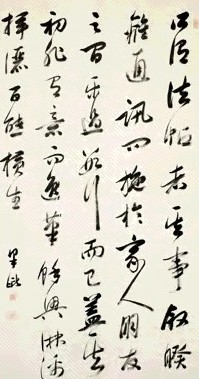 所謂法帖者其事敘睽
離通訊問施於家人朋友
之間不過數行而已蓋其
初非用意而逸筆餘興淋漓
揮灑百態橫生